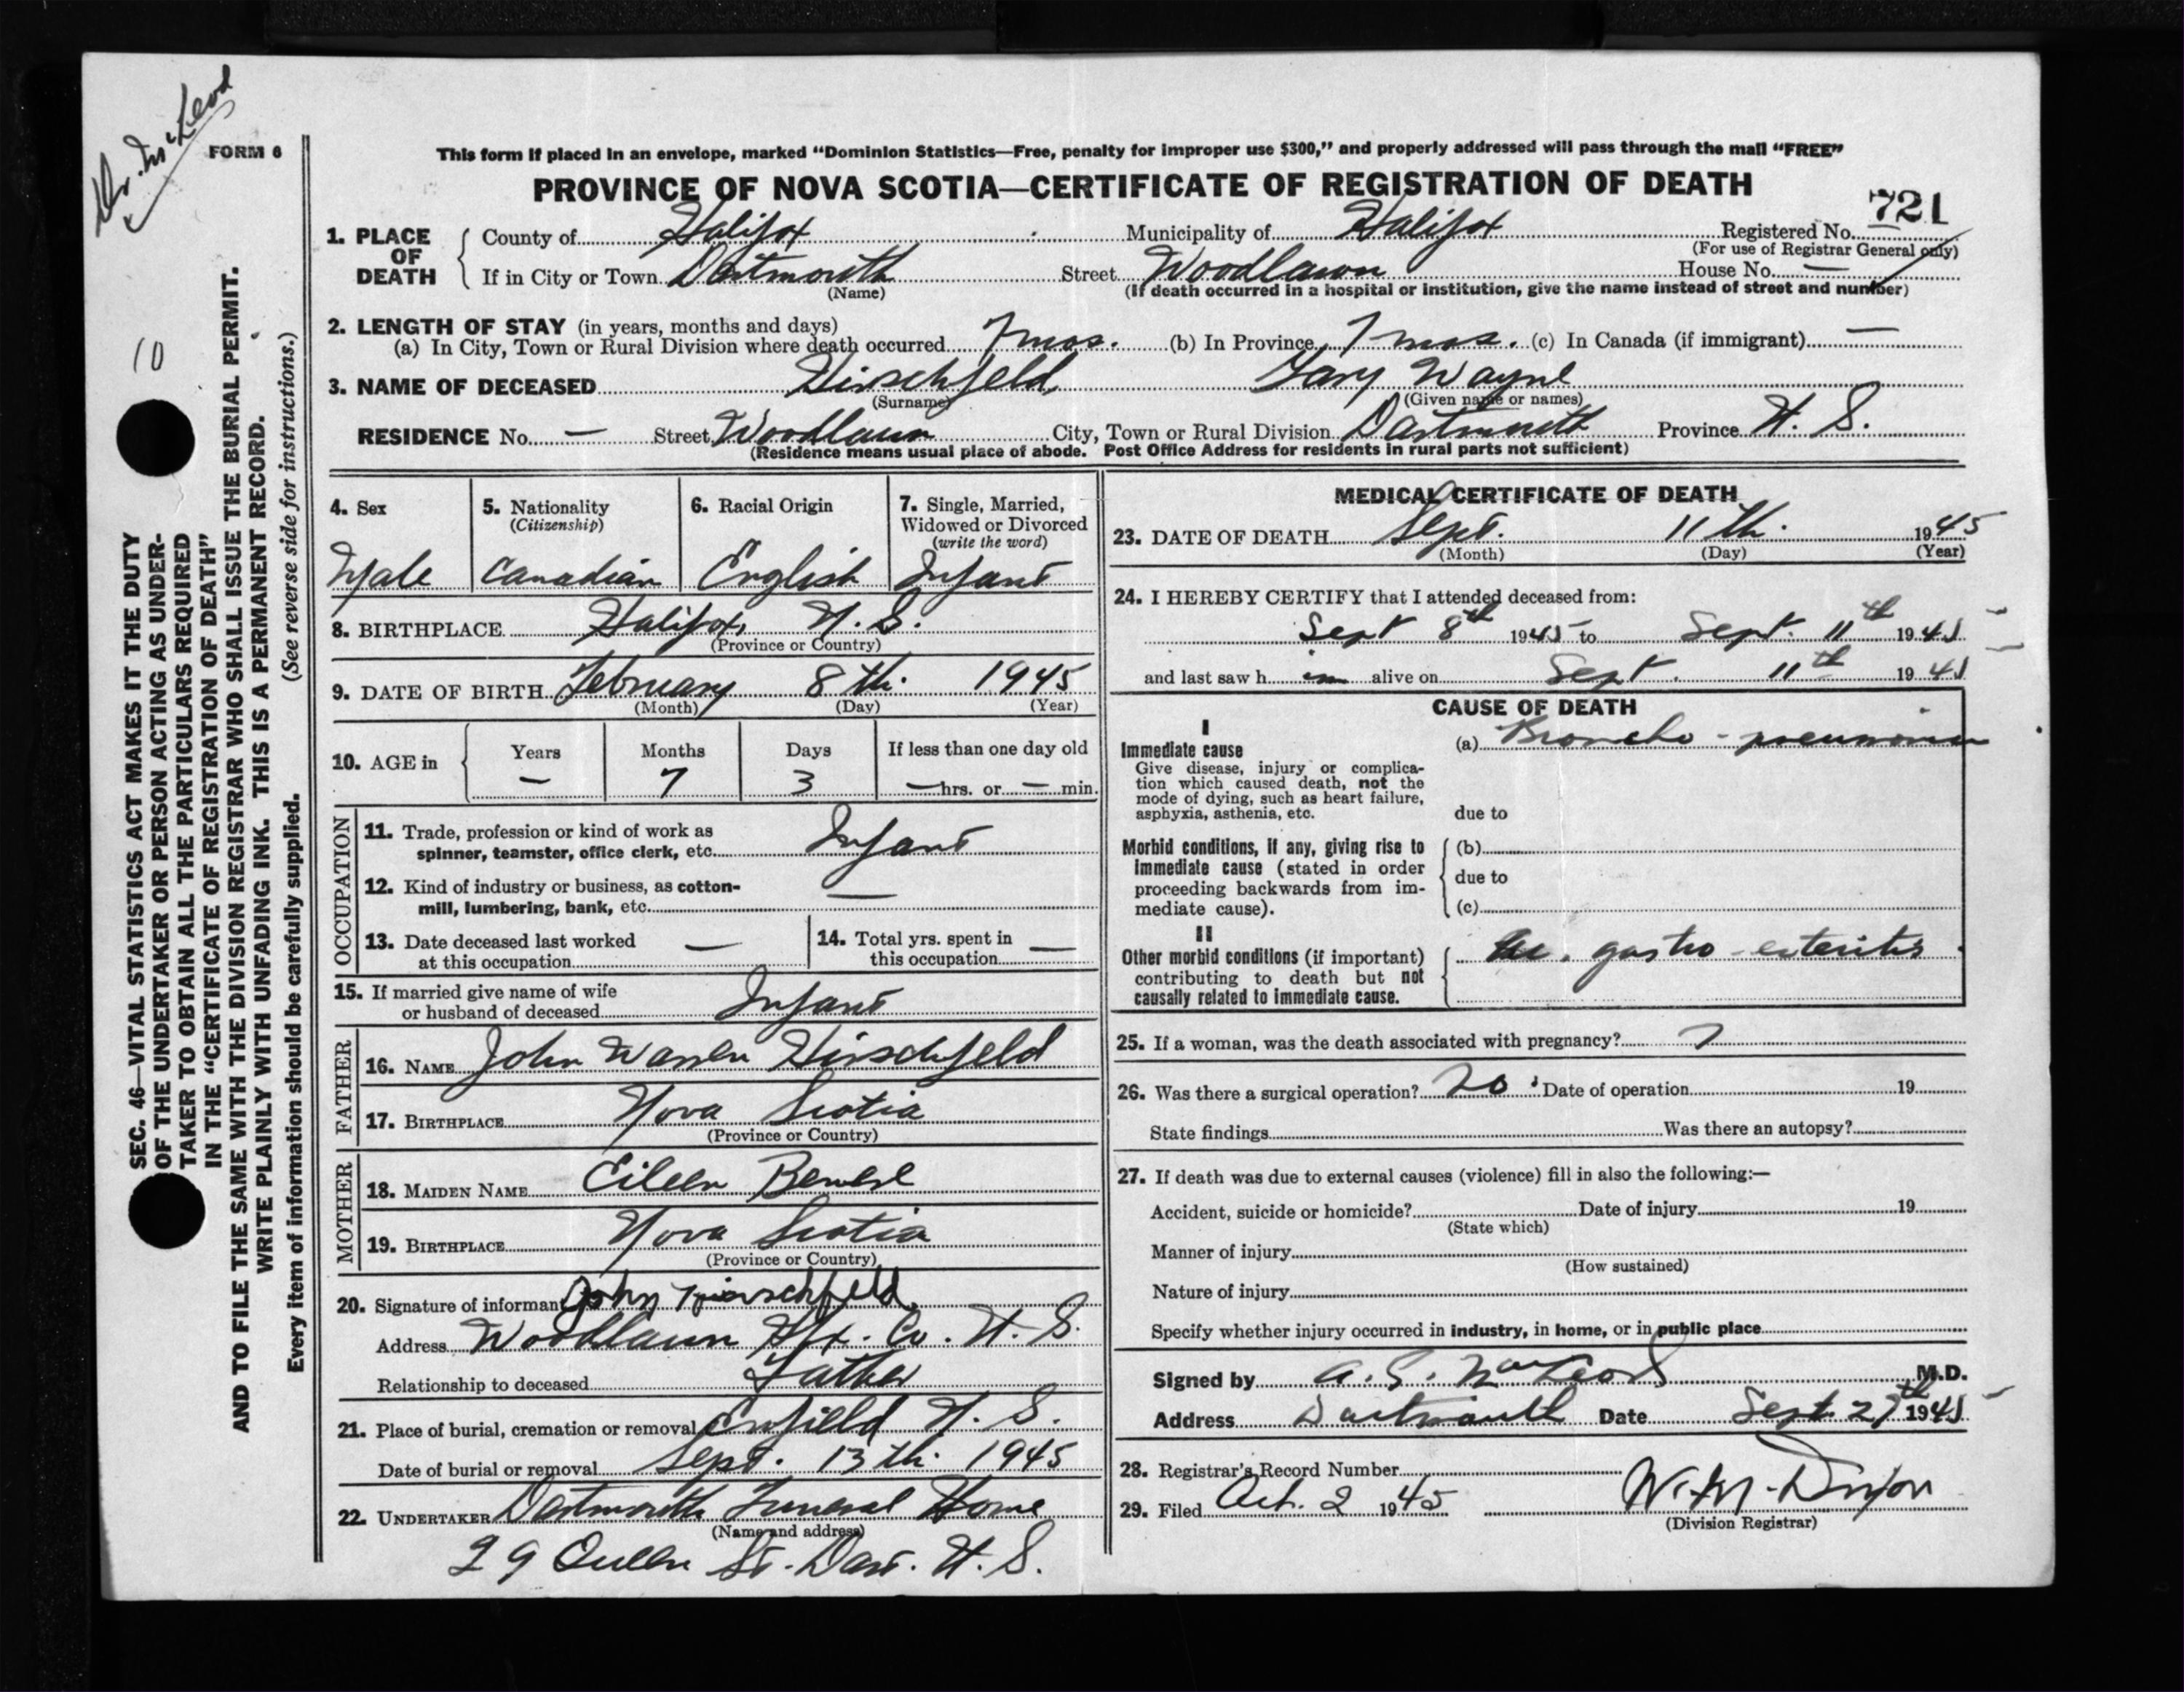 Dr. McLeod
FORM 6
10
SEC. 46—VITAL STATISTICS ACT MAKES IT THE DUTY
OF THE UNDERTAKER OR PERSON ACTING AS UNDER-
TAKER TO OBTAIN ALL THE PARTICULARS REQUIRED
IN THE "CERTIFICATE OF REGISTRATION OF DEATH"
AND TO FILE THE SAME WITH THE DIVISION REGISTRAR WHO SHALL ISSUE THE BURIAL PERMIT.
WRITE PLAINLY WITH UNFADING INK. THIS IS A PERMANENT RECORD.
Every item of information should be carefully supplied. (See reverse side for instructions.)
This form if placed in an envelope, marked "Dominion Statistics—Free, penalty for improper use $300," and properly addressed will pass through the mail "FREE"
PROVINCE OF NOVA SCOTIA—CERTIFICATE OF REGISTRATION OF DEATH
1. PLACE OF DEATH County of Halifax Municipality of Halifax Registered No. 721
(For use of Registrar General only)
If in City or Town Dartmouth Street Woodlawn House No. —
(Name) (If death occurred in a hospital or institution, give the name instead of street and number)
2. LENGTH OF STAY (in years, months and days)
(a) In City, Town or Rural Division where death occurred 7 mos. (b) In Province 7 mos. (c) In Canada (if immigrant) —
3. NAME OF DECEASED Hirschfeld Gary Wayne
(Surname) (Given name or names)
RESIDENCE No. — Street Woodlawn City, Town or Rural Division Dartmouth Province N. S.
(Residence means usual place of abode. Post Office Address for residents in rural parts not sufficient)
4. Sex 5. Nationality (Citizenship) 6. Racial Origin 7. Single, Married, Widowed or Divorced (write the word)
Male Canadian English Infant
8. BIRTHPLACE Halifax, N. S.
(Province or Country)
9. DATE OF BIRTH February 8th. 1945
(Month) (Day) (Year)
10. AGE in Years Months Days If less than one day old
— 7 3 — hrs. or — min.
OCCUPATION
11. Trade, profession or kind of work as
spinner, teamster, office clerk, etc. Infant
12. Kind of industry or business, as cotton-
mill, lumbering, bank, etc. —
13. Date deceased last worked at this occupation — 14. Total yrs. spent in this occupation —
15. If married give name of wife
or husband of deceased Infant
FATHER
16. NAME John Warren Hirschfeld
17. BIRTHPLACE Nova Scotia
(Province or Country)
MOTHER
18. MAIDEN NAME Eileen
19. BIRTHPLACE Nova Scotia
(Province or Country)
20. Signature of informant John Hirschfeld
Address Woodlawn Hfx. Co. N. S.
Relationship to deceased Father
21. Place of burial, cremation or removal Enfield N. S.
Date of burial or removal Sept. 13th. 1945
22. UNDERTAKER Dartmouth Funeral Home
(Name and address)
29 Queen St. Dart. N. S.
MEDICAL CERTIFICATE OF DEATH
23. DATE OF DEATH Sept. 11th. 1945
(Month) (Day) (Year)
24. I HEREBY CERTIFY that I attended deceased from:
Sept 8th 1945 to Sept. 11th 1945
and last saw him alive on Sept. 11th 1945
CAUSE OF DEATH
I
Immediate cause (a) Broncho-pneumonia
Give disease, injury or complica-
tion which caused death, not the
mode of dying, such as heart failure,
asphyxia, asthenia, etc. due to
Morbid conditions, if any, giving rise to (b)
immediate cause (stated in order
proceeding backwards from im- due to
mediate cause). (c)
II
Other morbid conditions (if important) Ac. gastro-enteritis
contributing to death but not
causally related to immediate cause.
25. If a woman, was the death associated with pregnancy?
26. Was there a surgical operation? no. Date of operation 19
State findings Was there an autopsy?
27. If death was due to external causes (violence) fill in also the following:—
Accident, suicide or homicide? Date of injury 19
(State which)
Manner of injury
(How sustained)
Nature of injury
Specify whether injury occurred in industry, in home, or in public place
Signed by A. S. MacLeod M.D.
Address Dartmouth Date Sept. 27th 1945
28. Registrar's Record Number
29. Filed Oct. 2 1945 W. M. Dixon
(Division Registrar)